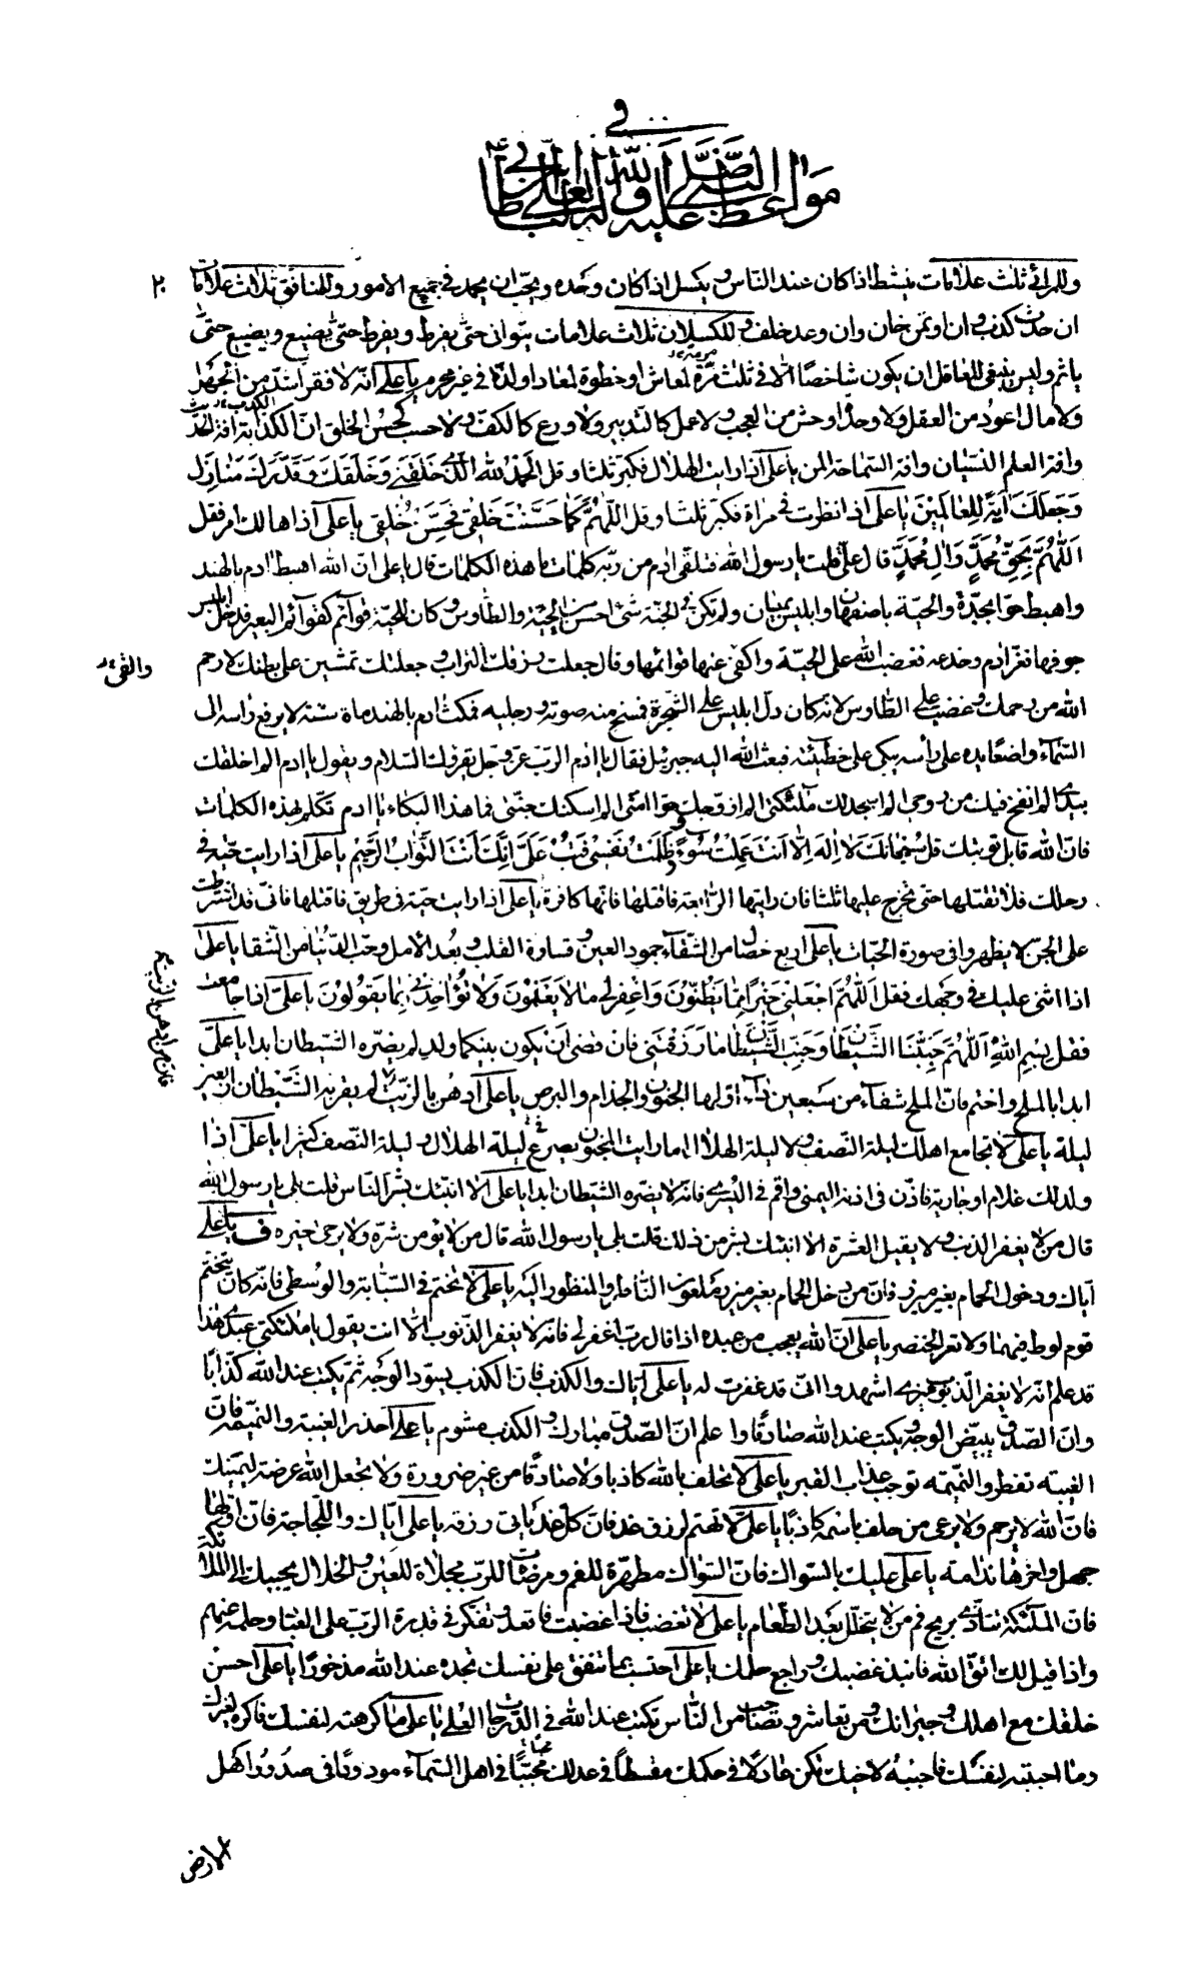 في
مواعظ النبي صلى الله عليه واله لعلي بن ابي طالب ع
وللمرائي ثلث علامات ينشط اذا كان عند الناس ويكسل اذا كان وحده ويحب ان يحمد في جميع الامور وللمنافق ثلاث علامات
ان حدث كذب وان اؤتمن خان وان وعد خلف وللكسلان ثلاث علامات يتوانى حتى يفرط ويفرط حتى يضيع ويضيع حتى
ياثم وليس ينبغي للعاقل ان يكون شاخصا الا في ثلث مرمة لمعاش او خطوة لمعاد او لذة في غير محرم يا علي انه لا فقر اشد من الجهل
ولا مال اعود من العقل ولا وحدة اوحش من العجب ولا عمل كالتدبير ولا ورع كالكف ولا حسب كحسن الخلق ان الكذب افة الحديث
وافة العلم النسيان وافة السماحة المن يا علي اذا رايت الهلال فكبر ثلثا وقل الحمد لله الذي خلقني وخلقك وقدرك منازل
وجعلك اية للعالمين يا علي اذا نظرت في مراة فكبر ثلثا وقل اللهم كما حسنت خلقي فحسن خلقي يا علي اذا هالك امر فقل
اللهم بحق محمد وال محمد قال علي قلت يا رسول الله فتلقى ادم من ربه كلمات ما هذه الكلمات قال يا علي ان الله اهبط ادم بالهند
واهبط حوا بجدة والحية باصفهان وابليس بميسان ولم تكن في الجنة شئ احسن من الحية والطاوس وكان للحية قوائم كقوائم البعير فدخل ابليس
جوفها فغر ادم وخدعه فغضب الله على الحية والقى عنها قوائمها وقال جعلت رزقك التراب وجعلتك تمشين على بطنك لا رحم
الله من رحمك وغضب على الطاوس لانه كان دل ابليس على الشجرة فمسخ منه صوته ورجليه فمكث ادم بالهند ماة سنة لا يرفع راسه الى
السماء واضعا يده على راسه يبكي على خطيئته فبعث الله اليه جبرئيل فقال يا ادم الرب عز وجل يقرئك السلام ويقول يا ادم الم اخلقك
بيدي الم انفخ فيك من روحي الم اسجد لك ملئكتي الم ازوجك حوا امتي الم اسكنك جنتي فما هذا البكاء يا ادم تكلم بهذه الكلمات
فان الله قابل توبتك قل سبحانك لا اله الا انت عملت سوء وظلمت نفسي فتب علي انك انت التواب الرحيم يا علي اذا رايت حية في
رحلك فلا تقتلها حتى تخرج عليها ثلثا فان رايتها الرابعة فاقتلها فانها كافرة يا علي اذا رايت حية في طريق فاقتلها فاني قد اشترطت
على الجن لا يظهروا في صورة الحيات يا علي اربع خصال من الشقاء جمود العين وقساوة القلب وبعد الامل وحب الدنيا من الشقا يا علي
اذا اثنى عليك في وجهك فقل اللهم اجعلني خيرا مما يظنون واغفر لي ما لا يعلمون ولا تؤاخذني بما يقولون يا علي اذا جامعت
فقل بسم الله اللهم جنبنا الشيطان وجنب الشيطان ما رزقتني فان قضى ان يكون بينكما ولد لم يضره الشيطان ابدا يا علي
ابدا بالملح واختم فان الملح شفاء من سبعين داء اولها الجنون والجذام والبرص يا علي ادهن بالزيت لم يقربه الشيطان اربعين
ليلة يا علي لا تجامع اهلك ليلة النصف ولا ليلة الهلال اما رايت المجنون يصرع في ليلة الهلال وليلة النصف كثيرا يا علي اذا
ولد لك غلام او جارية فاذن في اذنه اليمنى واقم في اليسرى فانه لا يضره الشيطان ابدا يا علي الا انبئك بشر الناس قلت بلى يا رسول الله
قال من لا يغفر الذنب ولا يقيل العثرة الا انبئك بشر من ذلك قلت بلى يا رسول الله قال من لا يؤمن شره ولا يرجى خيره ف يا علي
اياك ودخول الحمام بغير ميزر فان من دخل الحمام بغير ميزر ملعون الناظر والمنظور اليه يا علي لا تختم في السبابة والوسطى فانه كان يتختم
قوم لوط فيهما ولا تعر الخنصر يا علي ان الله يعجب من عبده اذا قال رب اغفر لي فانه لا يغفر الذنوب الا انت يقول يا ملئكتي عبدي هذا
قد علم انه لا يغفر الذنوب غيري اشهدوا اني قد غفرت له يا علي اياك والكذب فان الكذب يسود الوجه ثم يكتب عند الله كذابا
وان الصدق يبيض الوجه ويكتب عند الله صادقا واعلم ان الصدق مبارك والكذب مشوم يا علي احذر الغيبة والنميمة فان
الغيبة تفطر والنميمة توجب عذاب القبر يا علي لا تحلف بالله كاذبا ولا صادقا من غير ضرورة ولا تجعل الله عرضة ليمينك
فان الله لا يرحم ولا يرعى من حلف باسمه كاذبا يا علي لا تهتم لرزق غد فان كل غد ياتي رزقه يا علي اياك واللجاجة فان اولها
جهل واخرها ندامة يا علي عليك بالسواك فان السواك مطهرة للفم ومرضات للرب مجلاة للعين والخلال يحببك الى الملائكة
فان الملئكة تتاذى بريح فم من لا يتخلل بعد الطعام يا علي لا تغضب فاذا غضبت فاقعد وتفكر في قدرة الرب على العباد وحلمه عنهم
واذا قيل لك اتق الله فانبذ غضبك وراجع حلمك يا علي احتسب بما تنفق على نفسك تجده عند الله مذخورا يا علي احسن
خلقك مع اهلك وجيرانك ومن تعاشر وتصاحب من الناس تكتب عند الله في الدرجات العلى يا علي ما كرهته لنفسك فاكره لغيرك
وما احببته لنفسك فاحببه لاخيك تكن عادلا في حكمك مقسطا في عدلك محببا في اهل السماء مودودا في صدور اهل
الارض
والقى
فان من ادهن بالزيت